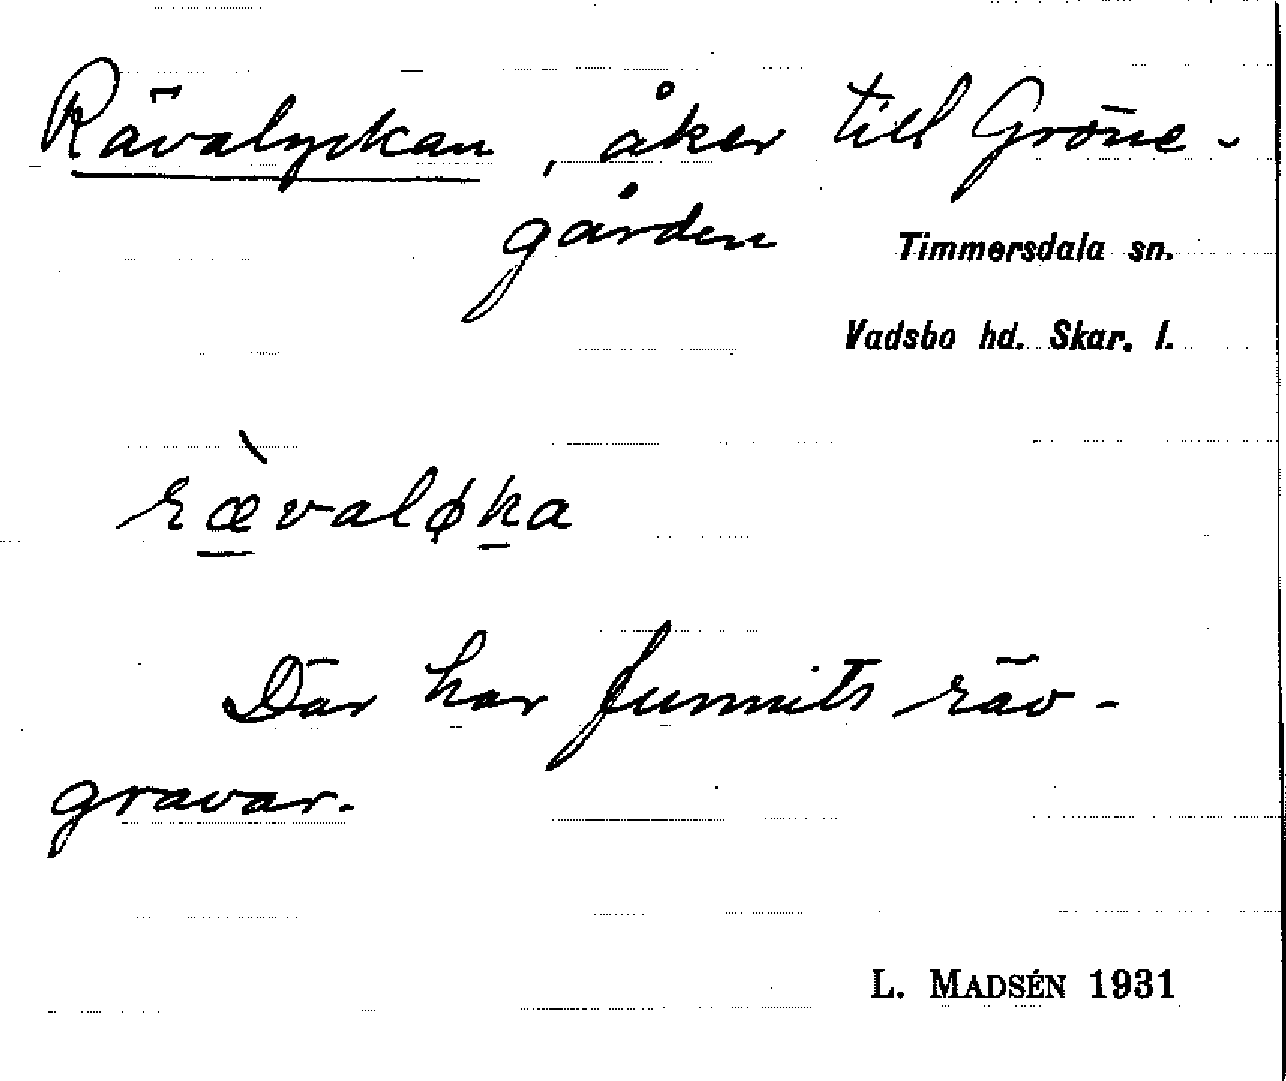 Rävalyckan, åker till Gröne-
gården
Timmersdala sn.
Vadsbo hd. Skar. l.
ræ̀valøka
Där har funnits räv-
gravar.
L. MADSÉN 1931